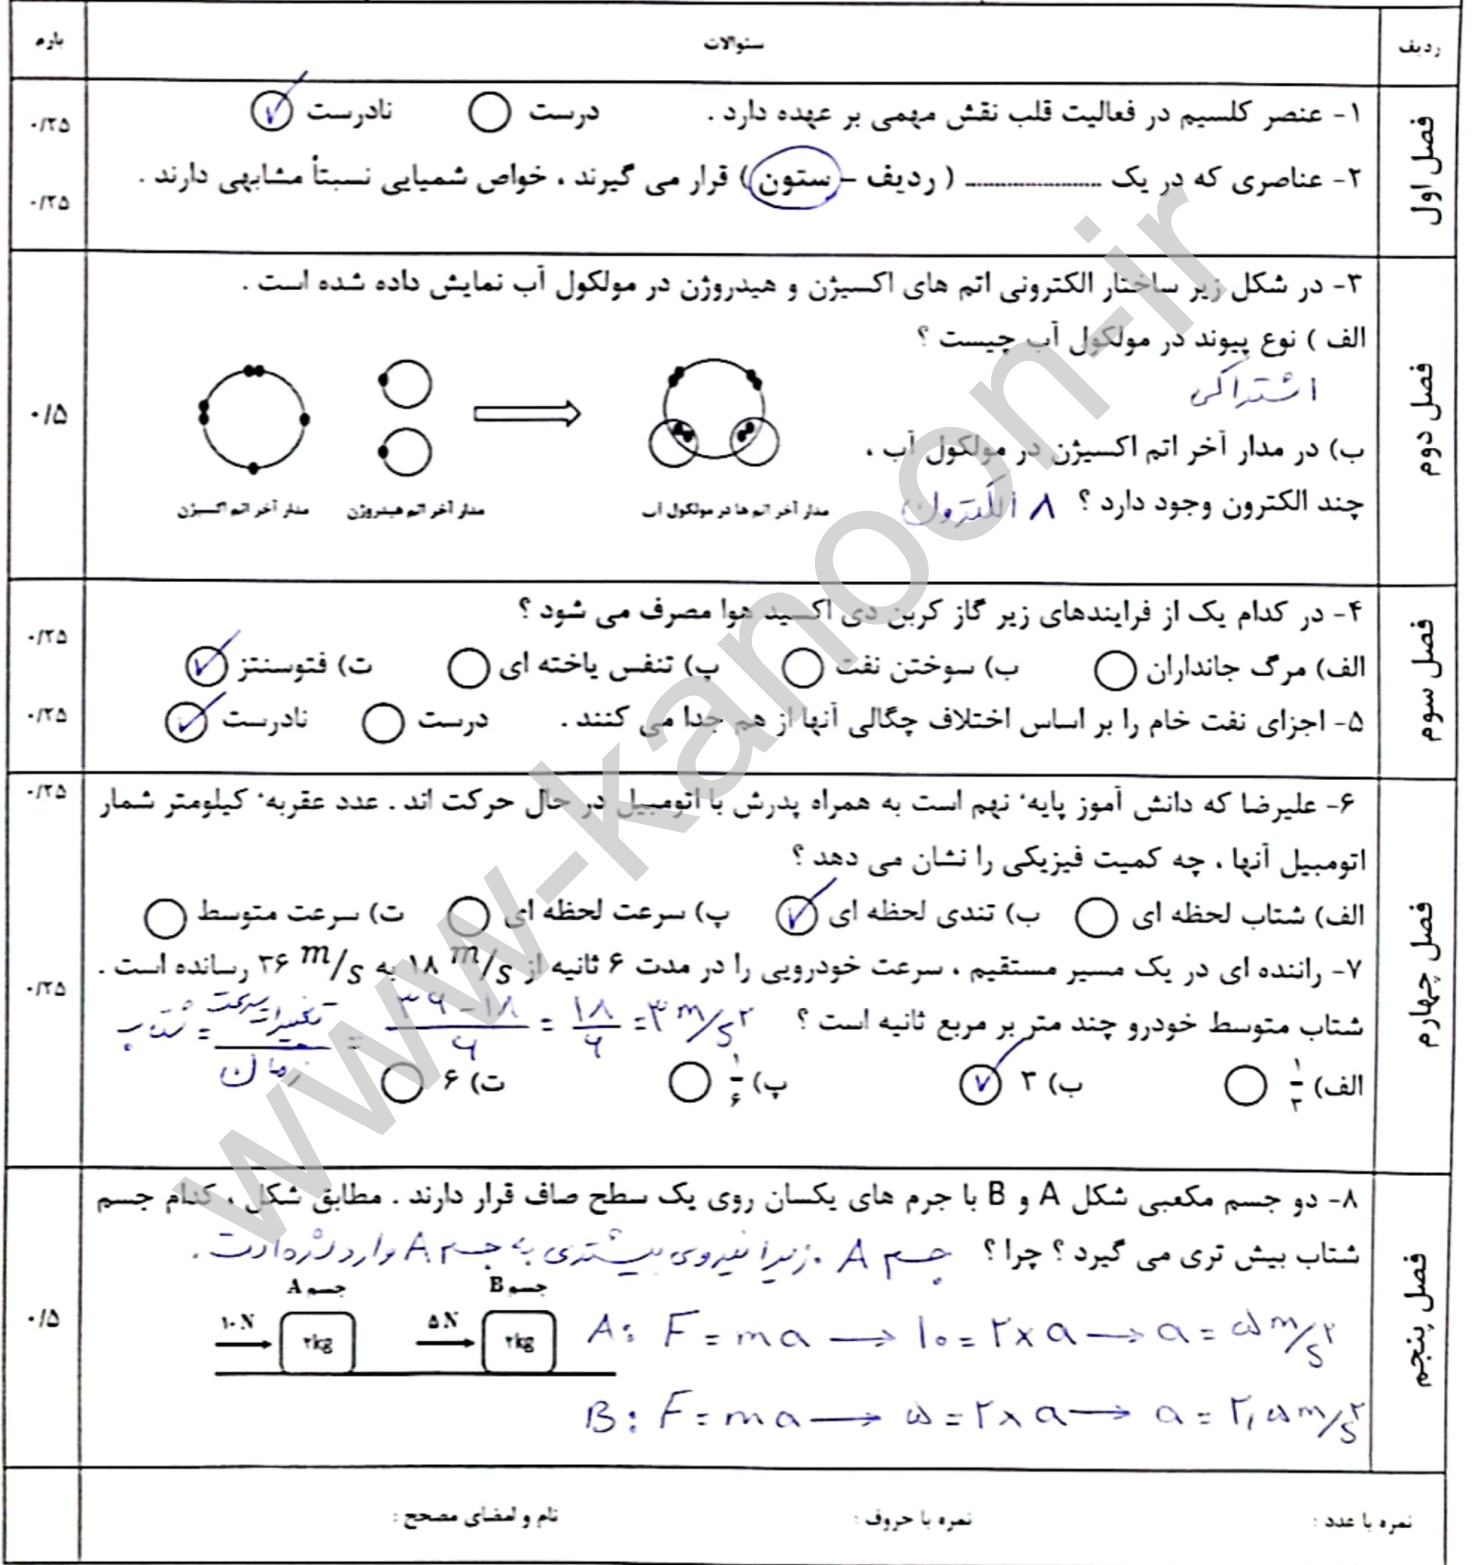 ردیف سئوالات بارم
فصل اول
۱- عنصر کلسیم در فعالیت قلب نقش مهمی بر عهده دارد . درست نادرست ✓
۰/۲۵
۲- عناصری که در یک .................... ( ردیف – ستون) قرار می گیرند ، خواص شمیایی نسبتاً مشابهی دارند .
۰/۲۵
فصل دوم
۳- در شکل زیر ساختار الکترونی اتم های اکسیژن و هیدروژن در مولکول آب نمایش داده شده است .
الف ) نوع پیوند در مولکول آب چیست ؟
اشتراکی
ب) در مدار آخر اتم اکسیژن در مولکول آب ،
چند الکترون وجود دارد ؟ ۸ الکترون
۰/۵
مدار آخر اتم ها در مولکول آب مدار آخر اتم هیدروژن مدار آخر اتم اکسیژن
فصل سوم
۴- در کدام یک از فرایندهای زیر گاز کربن دی اکسید هوا مصرف می شود ؟
۰/۲۵
الف) مرگ جانداران ب) سوختن نفت پ) تنفس یاخته ای ت) فتوسنتز ✓
۵- اجزای نفت خام را بر اساس اختلاف چگالی آنها از هم جدا می کنند . درست نادرست ✓
۰/۲۵
فصل چهارم
۶- علیرضا که دانش آموز پایهٔ نهم است به همراه پدرش با اتومبیل در حال حرکت اند . عدد عقربهٔ کیلومتر شمار
۰/۲۵
اتومبیل آنها ، چه کمیت فیزیکی را نشان می دهد ؟
الف) شتاب لحظه ای ب) تندی لحظه ای ✓ پ) سرعت لحظه ای ت) سرعت متوسط
۷- راننده ای در یک مسیر مستقیم ، سرعت خودرویی را در مدت ۶ ثانیه از ۱۸ m/s به ۳۶ m/s رسانده است .
۰/۲۵
شتاب متوسط خودرو چند متر بر مربع ثانیه است ؟
شتاب = تغییرات سرعت / زمان = ۳۶-۱۸ / ۶ = ۱۸/۶ = ۳ m/s۲
الف) ۱/۳ ب) ۳ ✓ پ) ۱/۶ ت) ۶
فصل پنجم
۸- دو جسم مکعبی شکل A و B با جرم های یکسان روی یک سطح صاف قرار دارند . مطابق شکل ، کدام جسم
شتاب بیش تری می گیرد ؟ چرا ؟ جسم A . زیرا نیروی بیشتری به جسم A وارد شده است .
۰/۵
جسم A جسم B
۱۰ N ۲kg ۵ N ۲kg
A: F = ma → ۱۰ = ۲×a → a = ۵ m/s۲
B: F = ma → ۵ = ۲×a → a = ۲,۵ m/s۲
نمره با عدد : نمره با حروف : نام و امضای مصحح :
www-kanoon-ir